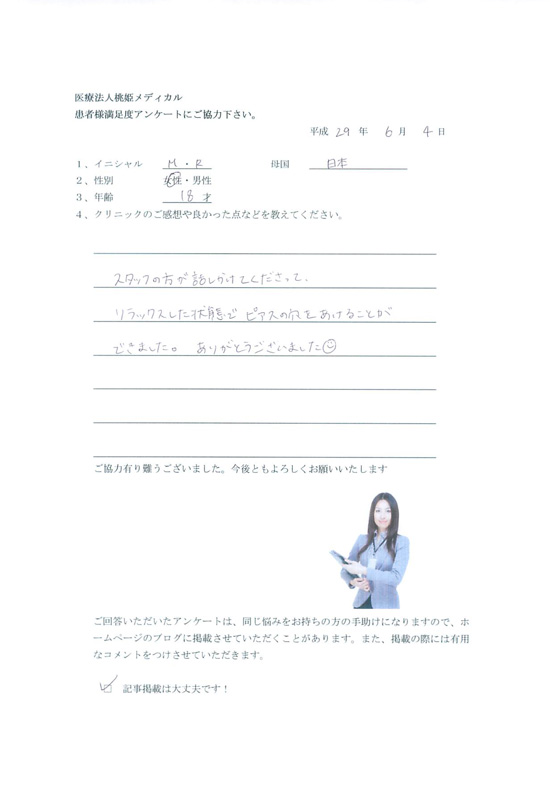 医療法人桃姫メディカル
患者様満足度アンケートにご協力下さい。
平成 29 年 6 月 4 日
1、イニシャル M・R 母国 日本
2、性別 女性・男性
3、年齢 18 才
4、クリニックのご感想や良かった点などを教えてください。
スタッフの方が話しかけてくださって、
リラックスした状態で ピアスの穴をあけることが
できました。 ありがとうございました
ご協力有り難うございました。今後ともよろしくお願いいたします
ご回答いただいたアンケートは、同じ悩みをお持ちの方の手助けになりますので、ホ
ームページのブログに掲載させていただくことがあります。また、掲載の際には有用
なコメントをつけさせていただきます。
記事掲載は大丈夫です！